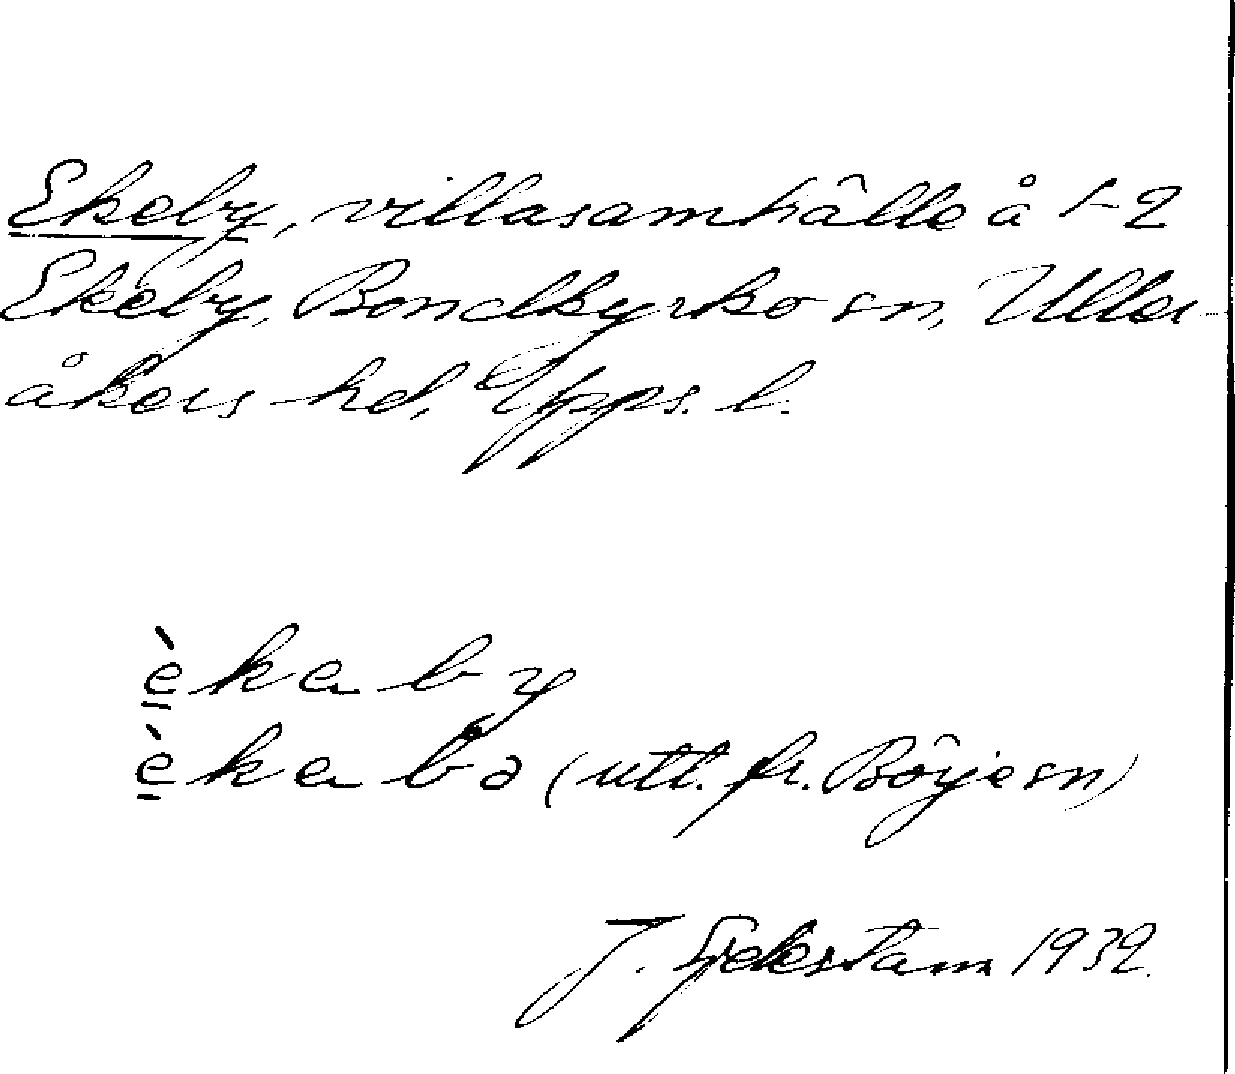 Ekeby, villasamhälle å 1-2
Ekeby, Bondkyrko sn, Uller-
åkers hd, Upps. l.
è̱kaby
è̱kabə (utt. fr. Börje sn)
J. 1932.